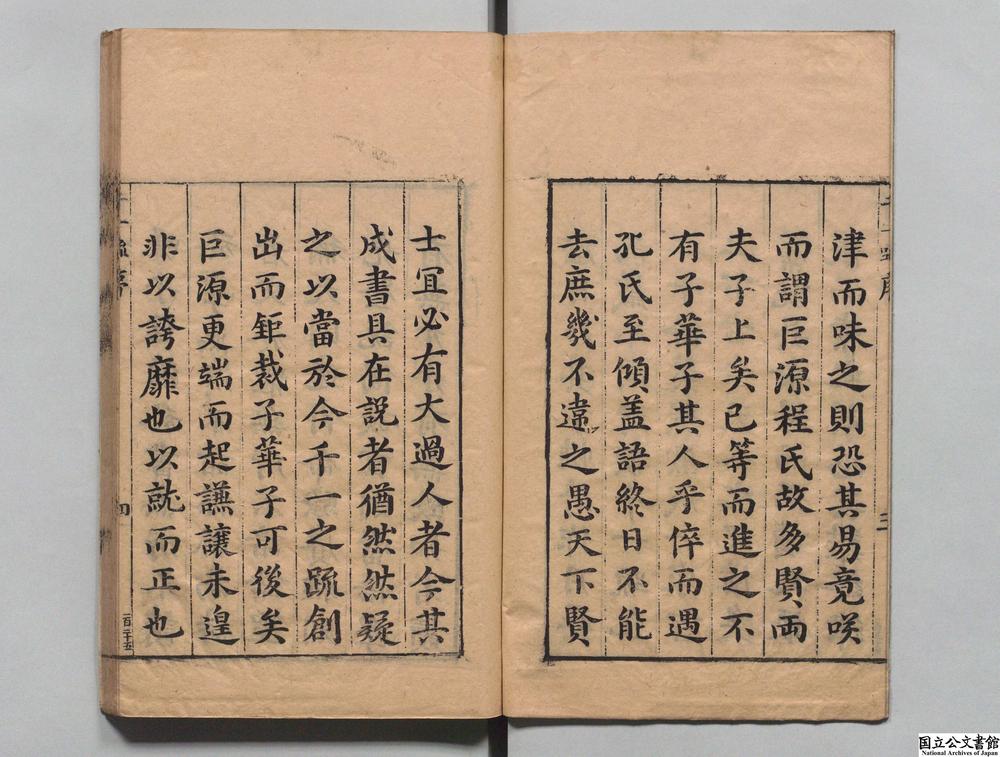 津而味之則恐其易竟咲
而謂巨源程氏故多賢両
夫子上矣已等而進之不
有子華子其人乎倅而遇
孔氏至傾盖語終日不能
去庶幾不違之愚天下賢
三
士冝必有大過人者今其
成書具在説者猶然然疑
之以當於今千一之䟽創
出而鉅裁子華子可後矣
巨源更端而起謙讓未遑
非以誇靡也以就而正也
四
一百二十五
国立公文書館
National Archives of Japan